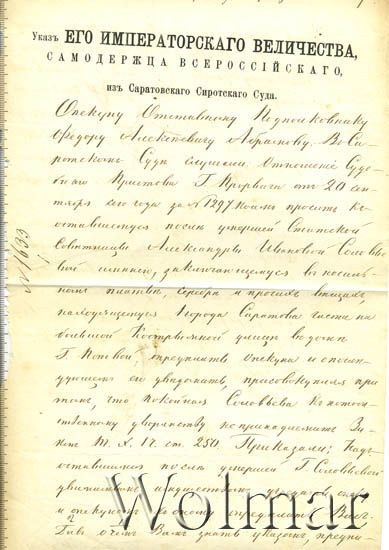 Указъ ЕГО ИМПЕРАТОРСКАГО ВЕЛИЧЕСТВА,
САМОДЕРЖЦА ВСЕРОССІЙСКАГО,
изъ Саратовскаго Сиротскаго Суда.
Опекуну Отставному Подполковнику
Федору Алексѣевичу Абрамову. Въ Си-
ротскомъ Судѣ слушали: Отношеніе Судеб-
наго Пристава Г. отъ 20 сен-
тября сего года за №1297 коимъ проситъ къ
оставшемуся послѣ умершей Статской
Совѣтницы Александры Ивановой Соловь-
евой имѣнію, заключающемуся въ носиль-
номъ платьѣ, серебрѣ и прочихъ вещахъ,
находящемуся города Саратова части на
большой Костри
Г. опекуна и
его увѣдомить, присовокупляя при
томъ, что покойная Соловьева къ потом-
ственному дворянству не принадлежитъ За-
конъ Т. X. 1 ч. ст. 250. Приказали: Надъ
оставшимся послѣ умершей Г. Соловьевой
движимымъ имуществомъ
и опекуномъ къ оному опредѣлить Васъ
о чемъ Вамъ знать указомъ, предпи-
№ 1633
Wolmar